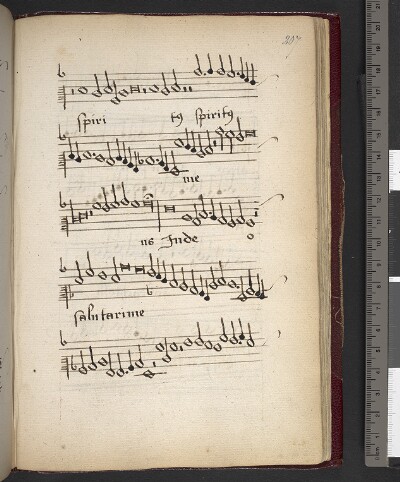 207
spiri tꝰ spiritꝰ
me
us Inde
salutarime